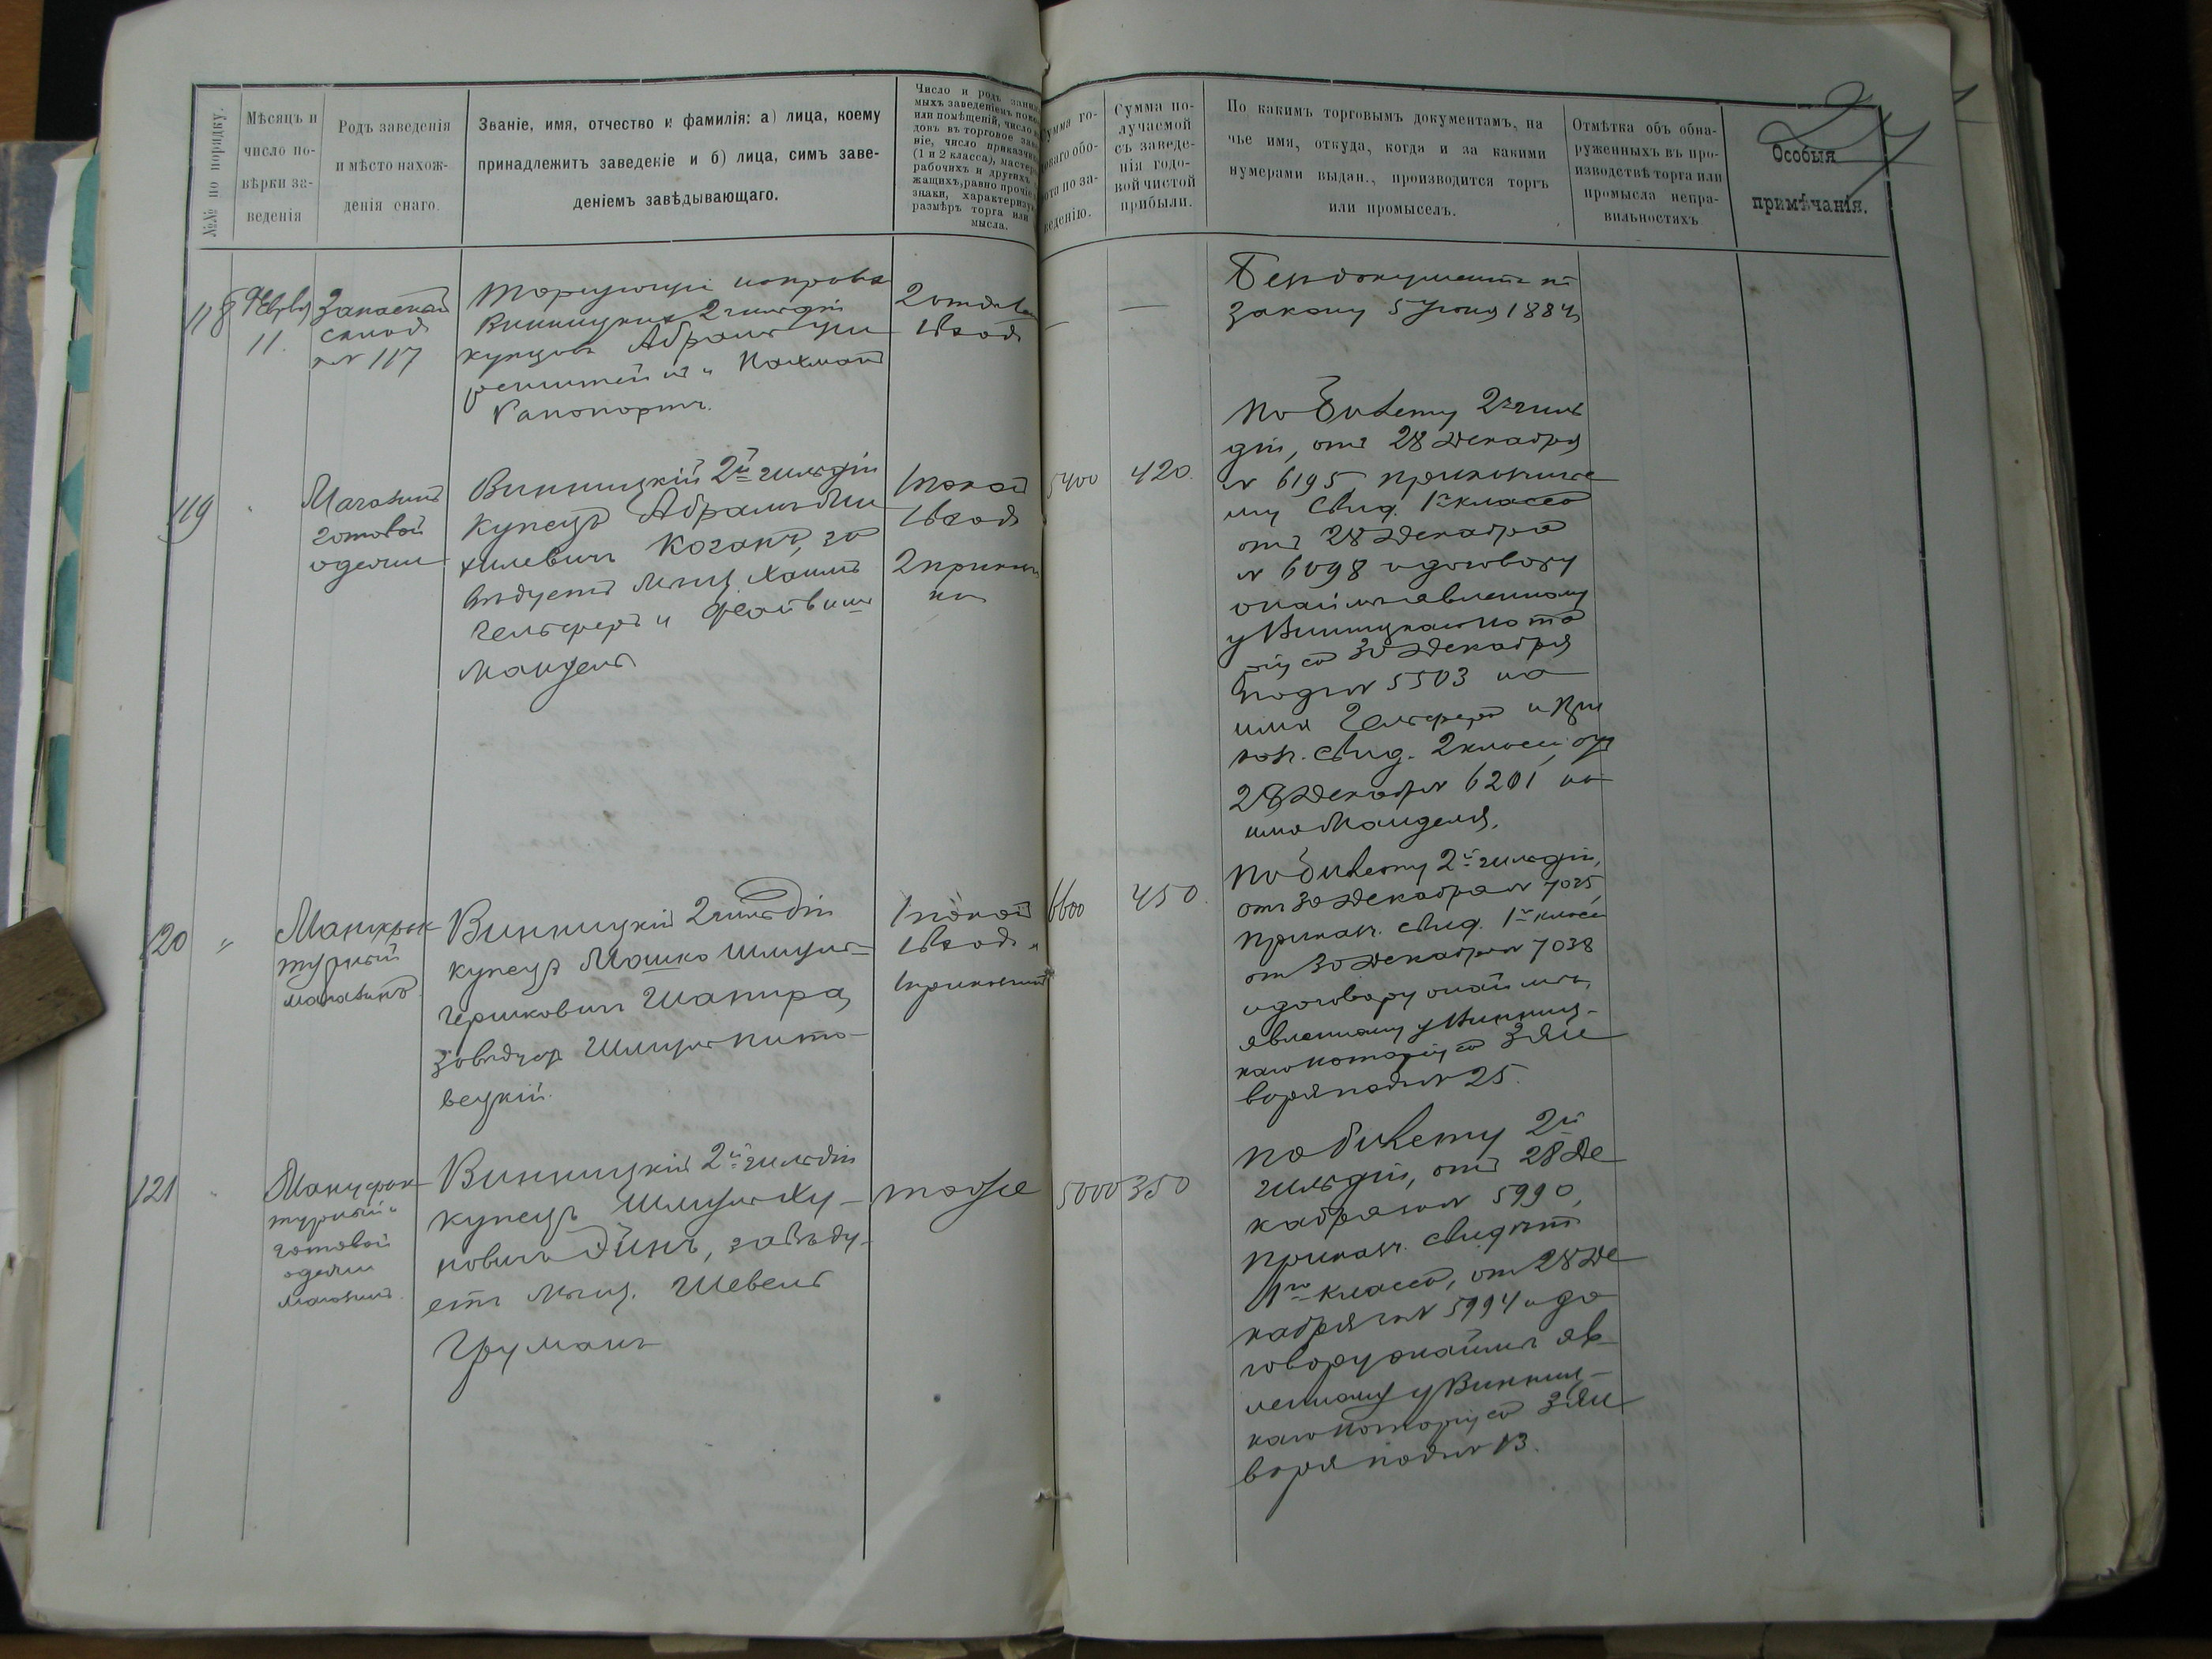 №№ по порядку.
Мѣсяцъ и
число по-
вѣрки за-
веденія
Родъ заведенія
и мѣсто нахож-
денія онаго.
Званіе, имя, отчество и фамилія: а) лица, коему
принадлежитъ заведеніе и б) лица, симъ заве-
деніемъ завѣдывающаго.
Число и родъ
мыхъ заведеніемъ
или помѣщеній, число
довъ въ торговое
ніе, число
(1 и 2 класса),
рабочихъ и другихъ
жащихъ, равно
знаки,
размѣръ торга или
мысла.
Сумма по-
лучаемой
съ заведе-
нія годо-
вой чистой
прибыли.
По какимъ торговымъ документамъ, на
чье имя, откуда, когда и за какими
нумерами выдан., производится торгъ
или промыселъ.
Отмѣтка объ обна-
руженныхъ въ про-
изводствѣ торга или
промысла непра-
вильностяхъ
Особыя
примѣчанія.
118
11.
складъ
№ 117
Винницкихъ 2 гильдіи
купцовъ Абрама
и Нахмана
Рапопортъ.
1 входъ
—
—
закону 5 Іюня 1884
119
Магазинъ
готовой
одежи
Винницкій 2й гильдіи
купецъ Абрамъ
хилевичъ Коганъ, за
вѣдуетъ мѣщ. Хаимъ
Гельферъ и
Мандель
1 покой
1 входъ
2 прикащи
ка
5400
420.
По билету 2й гиль
діи, отъ 28 Декабря
№ 6195
му свид. 1го класса
отъ 28 Декабря
№ 6098 и договору
о наймѣ явленному
у Винницкаго Нота
ріуса 30 Декабря
подъ № 5503 на
имя Гельфера и при
кащ. свид. 2 класса отъ
28 Декабря № 6201 на
имя Манделя.
120
"
Мануфак
турный
магазинъ.
Винницкій 2 гильдіи
купецъ Мошко Шмуль-
Гершковичъ Шапира,
завѣдуетъ Шмуль Пито-
вецкій.
1 покой
1 входъ и
1 прикащикъ
6600
450.
По билету 2й гильдіи,
отъ 30 Декабря № 7025
прикащ. свид. 1го класса
отъ 30 Декабря № 7038
и договору о наймѣ,
явленному у Винниц-
каго нотаріуса 3 Ян
варя подъ № 25.
121
Мануфак
турный и
готовой
одежи
магазинъ.
Винницкій 2й гильдіи
купецъ Шмуль Ху-
новичъ Динъ, завѣду-
етъ мѣщ. Шевель
Груманъ
тоже
5000
350
По билету 2й
гильдіи, отъ 28 Де
кабря за № 5990,
прикащ. свидѣт
1го класса, отъ 28 Де
кабря за № 5994 и до
говору о наймѣ яв
ленному у Винниц-
каго нотаріуса 3 Ян
варя подъ № 13.